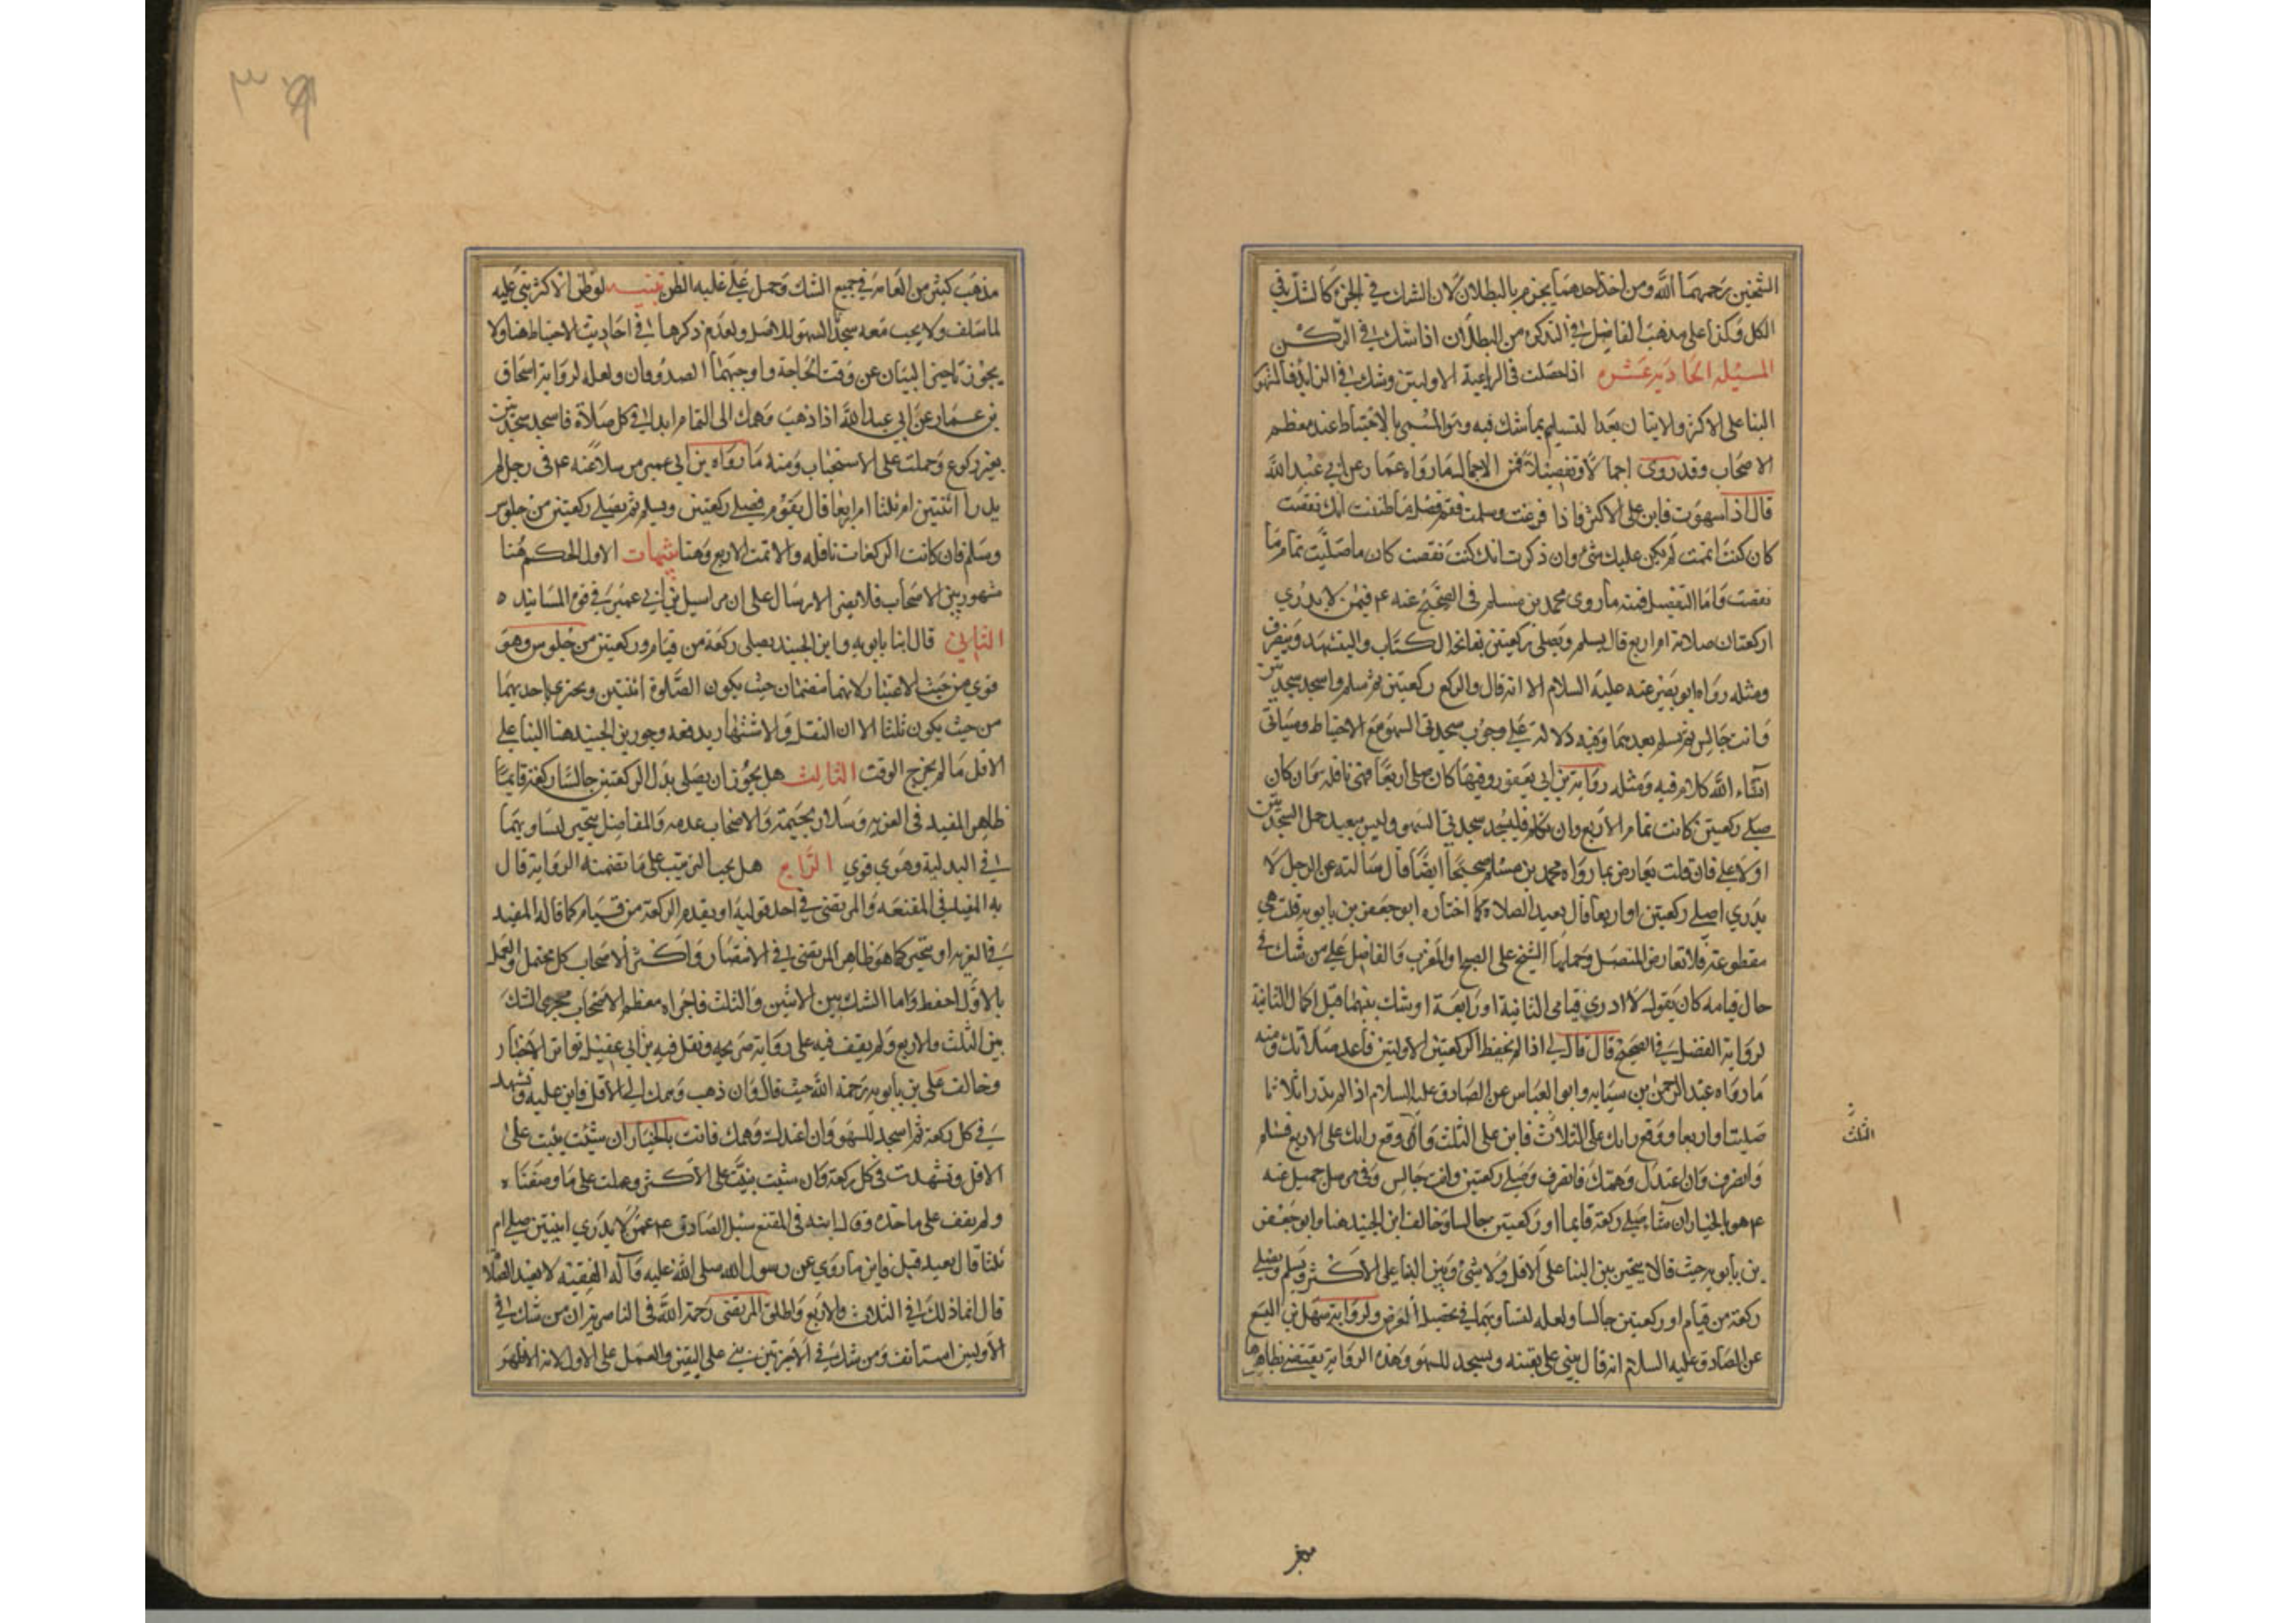 الشيخين رحمهما الله ومن اخذ احدهما يجزم بالبطلان لان الشك في الجزء كالشك في
الكل وكذا على مذهب الفاضل في التذكرة من البطلان اذا شك في الركن
المسئلة الحادية عشره اذا حصلت في الرباعية الاوليتن وشك في الزايد فالمشهور
البنا على الاكثر والاتيان بعد التسليم بما شك فيه وهو المسمى بالاحتياط عند معظم
الاصحاب وقد روى اجمالا وتفصيلا فمن الاجمال ما رواه عمار عن ابي عبد الله
قال اذا سهوت فابن على الاكثر فاذا فرغت وسلمت فقم فصل ما ظننت انك نقصت
كان كنت اتممت لم يكن عليك شئ وان ذكرت انك كنت نقصت كان ما صليت تمام ما
نقصت واما التفصيل فمنه ما روى محمد بن مسلم في الصحيح عنه ع فيمن لا يدري
اركعتان صلاته ام اربع قال يسلم ويصلى ركعتين بفاتحة الكتاب ويتشهد وينصرف
ومثله رواه ابو بصير عنه عليه السلام الا انه قال واركع ركعتين ثم سلم واسجد سجدتين
وانت جالس ثم تسلم بعدهما وفيه دلالة على وجوب سجدتي السهو مع الاحتياط وسياتى
انشاء الله كلام فيه ومثله رواية بن ابي يعفور وفيها كان صلى اربعا فهى نافله وان كان
صلى ركعتين كانت تمام الاربع وان تكلم فليسجد سجدتي السهو وليس ببعيد حمل السجدتين
اولا على فان قلت يعارض بما رواه محمد بن مسلم صحيحا ايضا قال سالته عن الرجل لا
يدري اصلى ركعتين او اربعا قال يعيد الصلاة كما اختاره ابو جعفر بن بابويه قلت هي
مقطوعة فلا تعارض المتصل وحملها الشيخ على الصبح او المغرب والفاضل على من شك في
حال قيامه كان يقول لا ادري قيامى الثانية او رابعة او شك بينهما قبل اكمال الثانية
لرواية الفضل في الصحيح قال قال لي اذا لم تحفظ الركعتين الاوليتين فاعد صلاتك ومنه
ما رواه عبد الرحمن بن سيابه وابو العباس عن الصادق عليه السلام اذا لم تدر اثلاثا
صليت او اربعا ووقع رايك على الثلاث فابن على الثلث وان وقع رايك على الاربع فسلم
الثلث
وانصرف وان اعتدل وهمك فانصرف وصلى ركعتين وانت جالس وفى مرسل جميل عنه
ع هو بالخيار ان شا صلى ركعة قايما او ركعتين جالسا وخالف ابن الجنيد هنا وابو جعفر
بن بابويه حيث قالا يتخير بين البنا على الاقل ولا شئ وبين البنا على الاكثر ويسلم ويصلى
ركعة من قيام او ركعتين جالسا ولعله لتساويهما في تحصيل الغرض ولرواية سهل بن اليسع
عن الصادق عليه السلام انه قال يبنى على يقينه ويسجد للسهو وهذه الرواية يقتضى بظاهرها
٣
مذهب كثير من العامة في جميع الشك وحمل على غلبة الظن تنبيه لو ظن الاكثر بنى عليه
لما سلف ولا يجب معه سجدتا السهو للاصل ولعدم ذكرهما في احاديث الاحتياط هنا ولا
يجوز تاخير البيان عن وقت الحاجة واوجبهما الصدوقان ولعله لرواية اسحاق
بن عمار عن ابي عبد الله اذا ذهب وهمك الى التمام ابدا في كل صلاة فاسجد سجدتين
بغير ركوع وحملت على الاستحباب ومنه ما رواه بن ابي عمير مرسلا عنه ع فى رجل لم
يدر اثنتين ام ثلثا ام اربعا قال يقوم فيصلى ركعتين ويسلم ثم يصلى ركعتين من جلوس
وسلم فان كانت الركعات نافله والا تمت الاربع وهنا الاول الحكم هنا
مشهور بين الاصحاب فلا يضر الارسال على ان مراسيل بن ابي عمير في قوه المسانيد
الثاني قال ابنا بابويه وابن الجنيد يصلى ركعة من قيام وركعتين من جلوس وهو
قوي من حيث الاعتبار لانهما منضمتان حيث يكون الصلوة اثنتين ويجتزى باحديهما
من حيث يكون ثلثا الا ان النقل والاشتهار يدفعه وجوز بن الجنيد هنا البنا على
الاقل ما لم يخرج الوقت الثالث هل يجوز ان يصلى بدل الركعتين جالسا ركعة قايما
ظاهر المفيد فى الغرية وسلار تحتمه والاصحاب عدمه والفاضل يتخير لتساويهما
في البدلية وهو قوي الرابع هل يجب الترتيب على ما تضمنته الرواية قال
به المفيد في المقنعه والمرتضى في احد قوليه او يقدم الركعة من قيام كما قاله المفيد
في الغريه او يتخير كما هو ظاهر المرتضى في الانتصار واكثر الاصحاب كل محتمل والعمل
بالاول احفظ واما الشك بين الاثنين والثلث فاجراه معظم الاصحاب مجرى الشك
بين الثلث والاربع ولم يقف فيه على رواية صريحه ونقل فيه بن ابي عقيل تواتر الاخبار
وخالف على بن بابويه رحمة الله حيث قال وان ذهب وهمك الى الاقل فابن عليه وتشهد
في كل ركعة ثم اسجد للسهو وان اعتدلت وهمك فانت بالخيار ان شئت بنيت على
الاقل وتشهدت في كل ركعة وان شئت بنيت على الاكثر وعملت على ما وصفنا ه
ولم يقف على ماخذه وقال ابنه فى المقنع سئل الصادق ع عمن لا يدري اثنتين صلى ام
ثلثا قال يعيد قيل فاين ما روي عن رسول الله صلى الله عليه وآله الفقيه لا يعيد الصلاة
قال انما ذلك في الثلاث والاربع واطلق المرتضى رحمة الله فى الناصرية ان من شك في
الاوليين استانف ومن شك في الاخيرتين بنى على اليقين والعمل على الاول لانه الاظهر